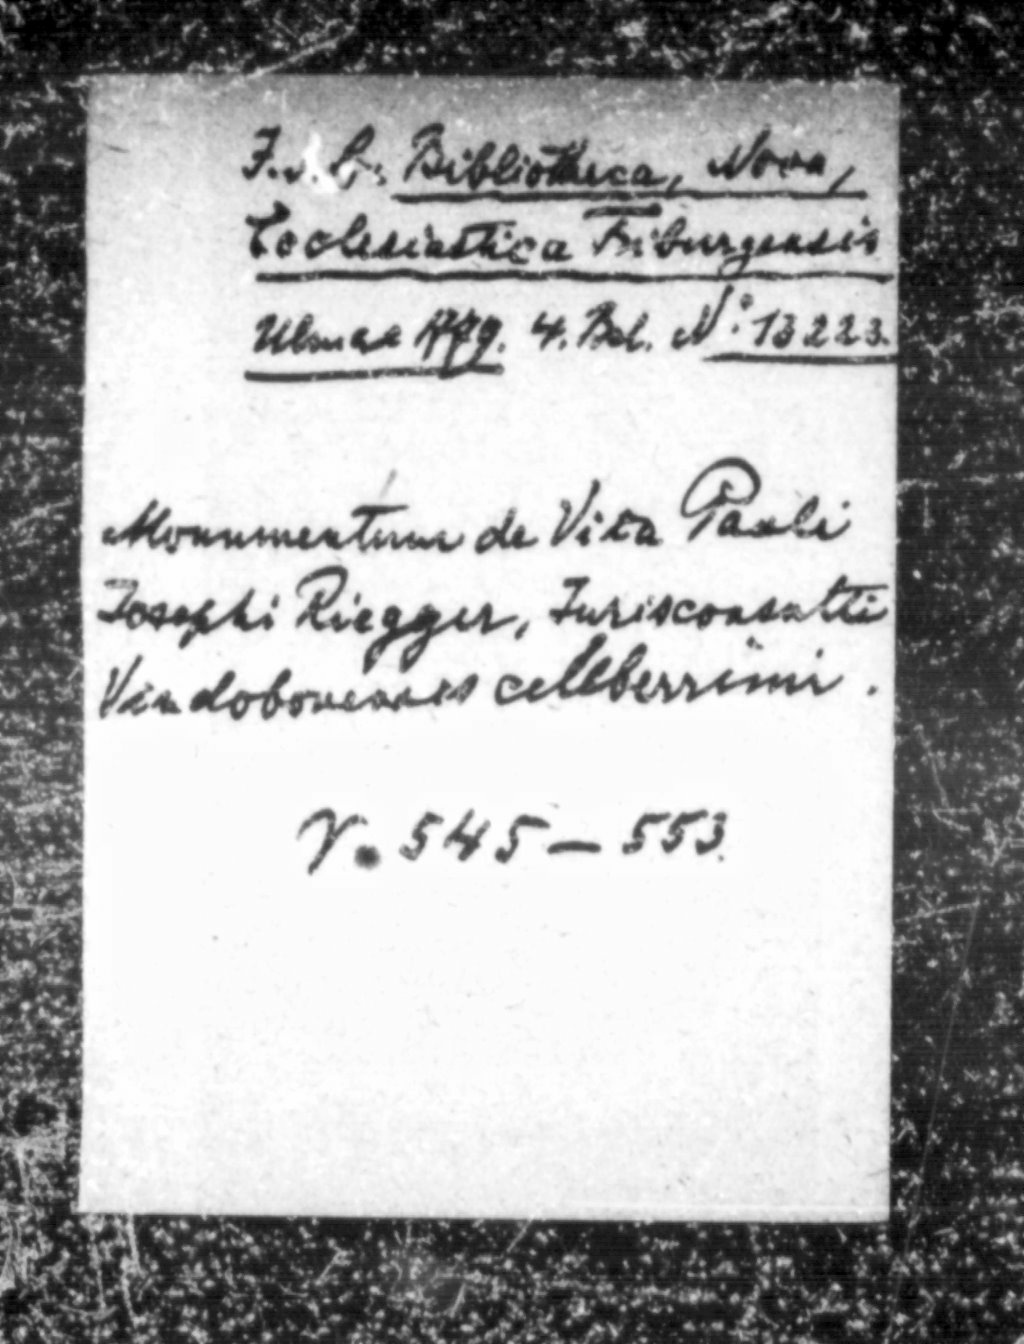 Bibliotheca, Nova,
Ecclesiastica Friburgensis
Ulmae 4. Bd. N° 13223.
Monumentum de Vita Pauli
Josephi Riegger, Jurisconsulti
Vindobonenses celleberrimi.
V. 545 – 553.